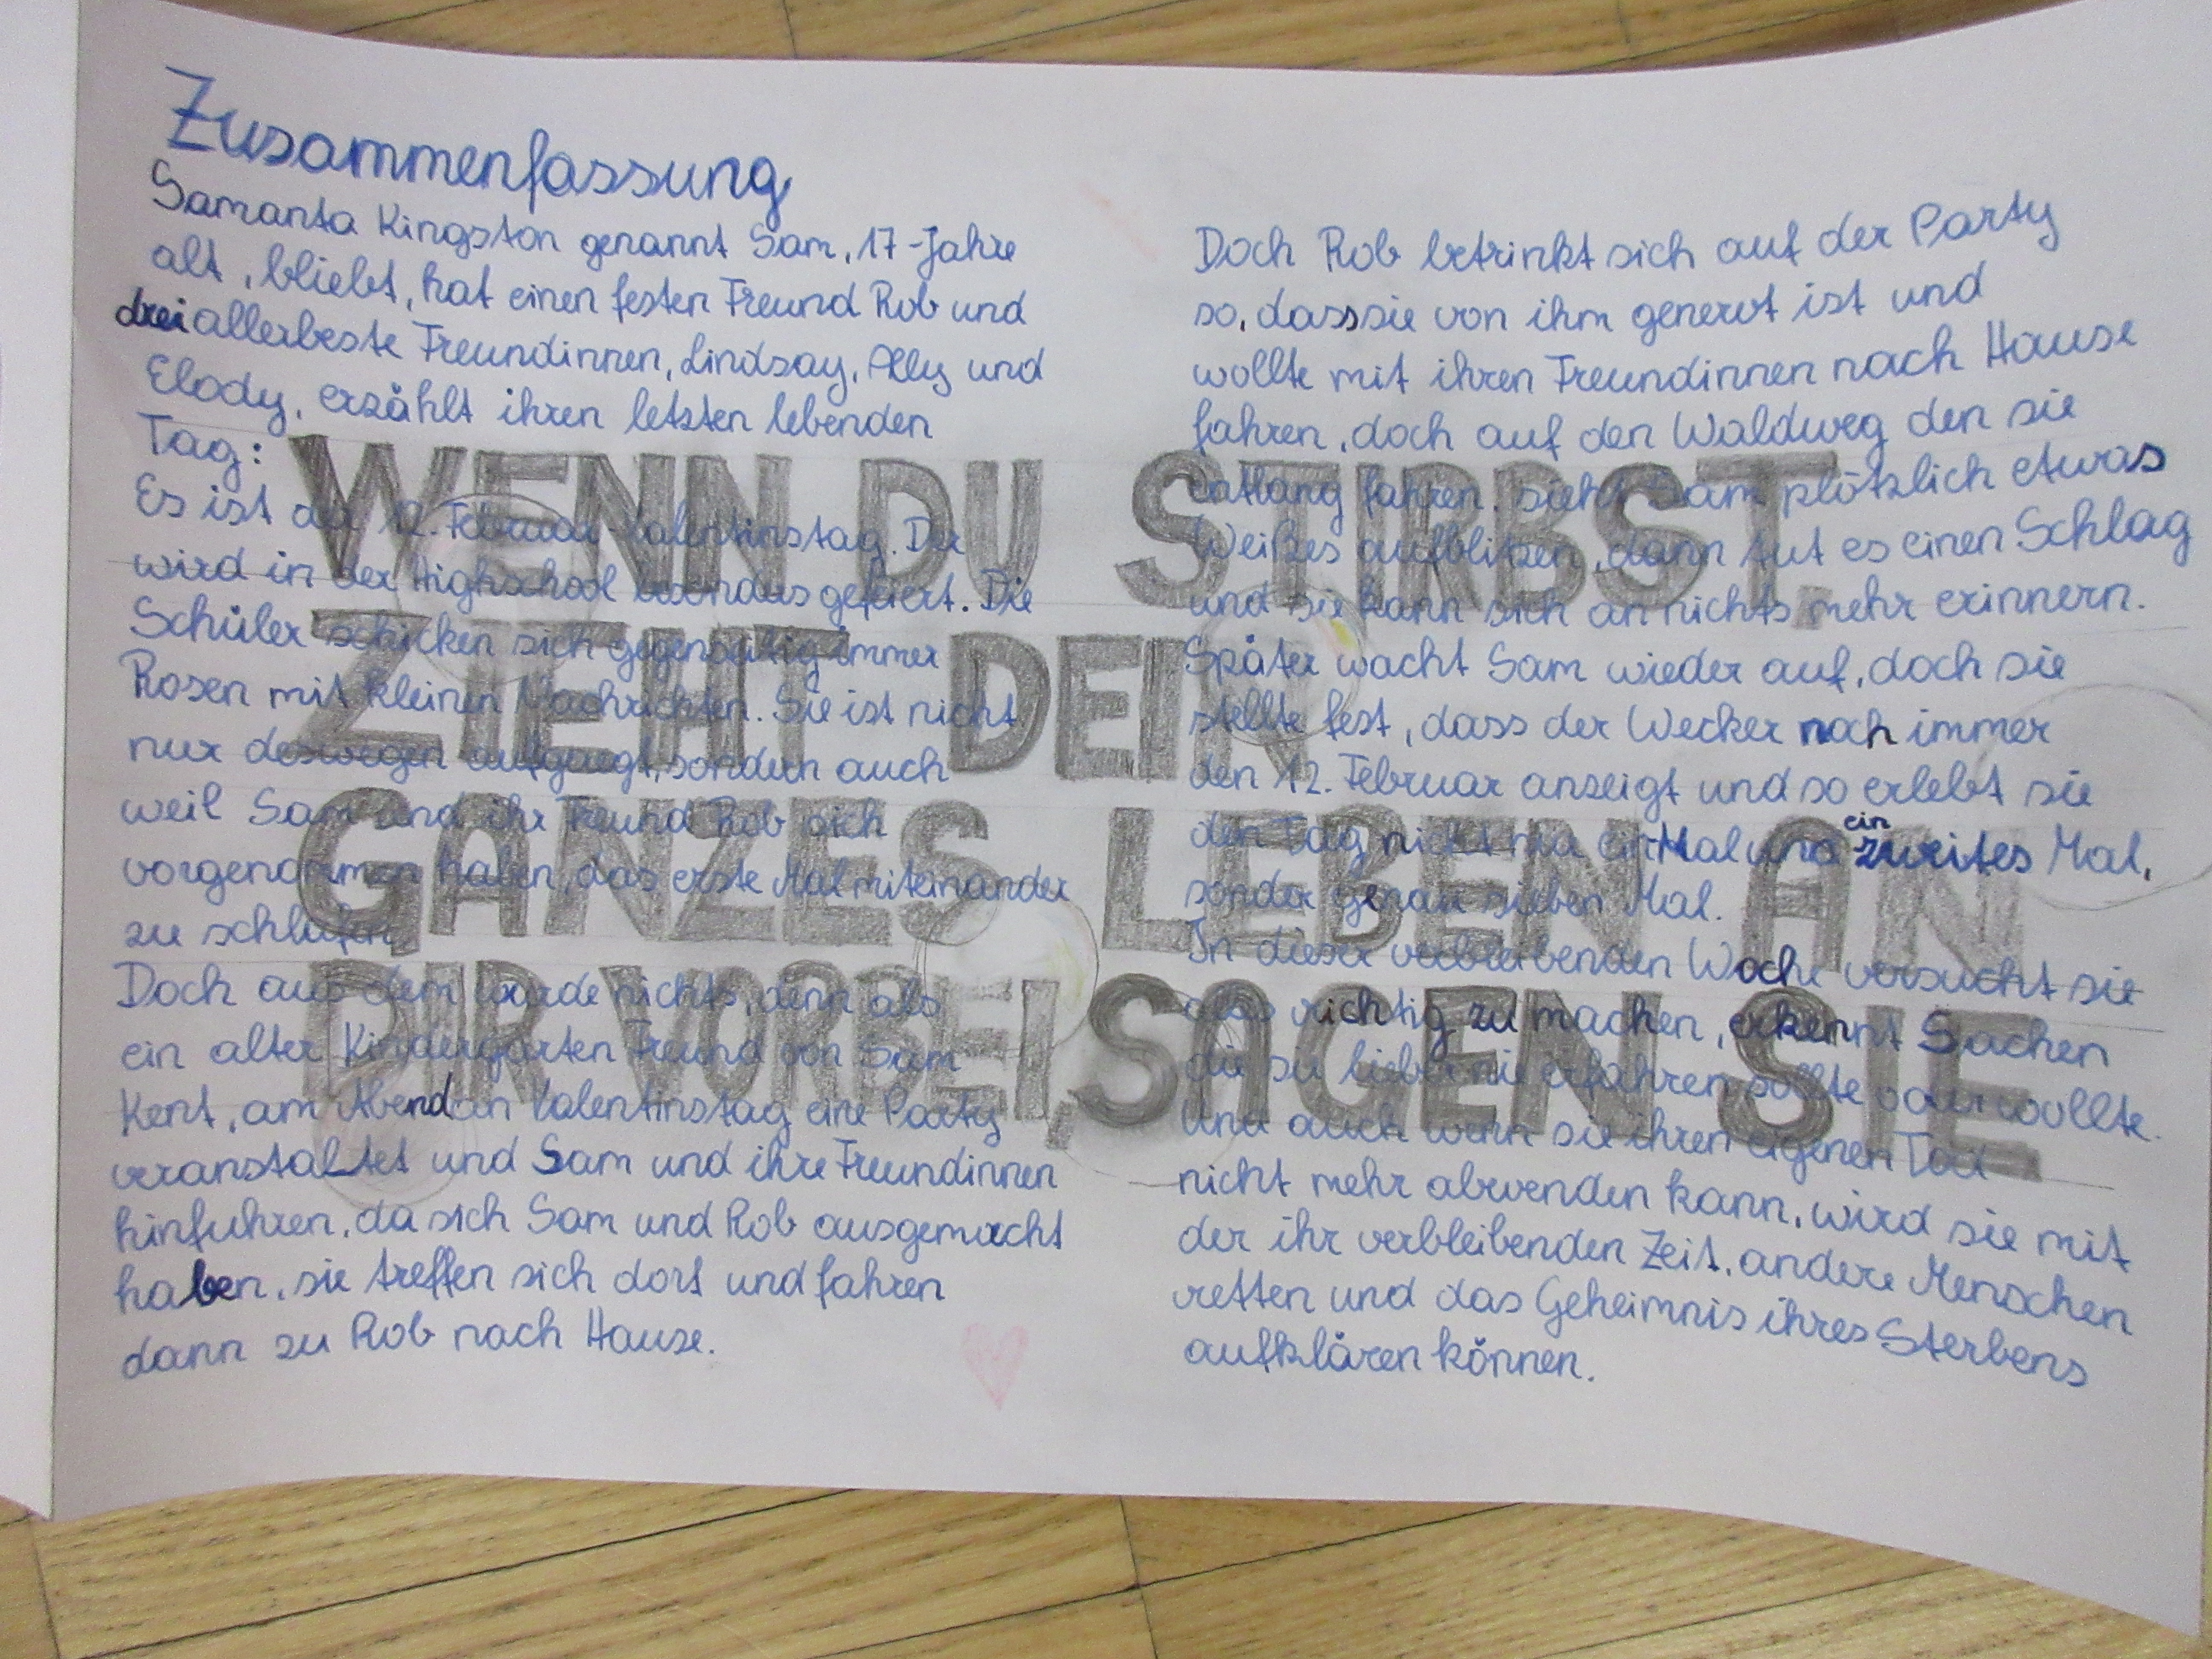 Zusammenfassung
Samanta Kingston genannt Sam, 17-Jahre
alt, bliebt, hat einen festen Freund Rob und
drei allerbeste Freundinnen, Lindsay, Ally und
Elody, erzählt ihren letzten lebenden
Tag:
Es ist der 12. Februar Valentinstag. Der
wird in der Highschool besonders gefeiert. Die
Schüler schicken sich gegenseitig immer
Rosen mit kleinen Nachrichten. Sie ist nicht
nur deswegen aufgeregt, sondern auch
weil Sam und ihr Freund Rob sich
vorgenommen haben, das erste Mal miteinander
zu schlafen.
Doch aus dem wurde nichts, denn als
ein alter Kindergarten Freund von Sam
Kent, am Abend an Valentinstag eine Party
veranstaltet und Sam und ihre Freundinnen
hinfuhren, da sich Sam und Rob ausgemacht
haben, sie treffen sich dort und fahren
dann zu Rob nach Hause.
Doch Rob betrinkt sich auf der Party
so, dass sie von ihm genervt ist und
wollte mit ihren Freundinnen nach Hause
fahren, doch auf den Waldweg den sie
entlang fahren, sieht Sam plötzlich etwas
Weißes aufblitzen, dann tut es einen Schlag
und sie kann sich an nichts mehr erinnern.
Später wacht Sam wieder auf, doch sie
stellte fest, dass der Wecker noch immer
den 12. Februar anzeigt und so erlebt sie
den Tag nicht ein Mal und ein zweites Mal,
sonder genau sieben Mal.
In dieser verbleibenden Woche versucht sie
alles richtig zu machen, erkennt Sachen
die sie lieber nie erfahren sollte oder wollte.
Und auch wenn sie ihren eigenen Tod
nicht mehr abwenden kann, wird sie mit
der ihr verbleibenden Zeit, andere Menschen
retten und das Geheimnis ihres Sterbens
aufklären können.
WENN DU STIRBST,
ZIEHT DEIN
GANZES LEBEN AN
DIR VORBEI, SAGEN SIE